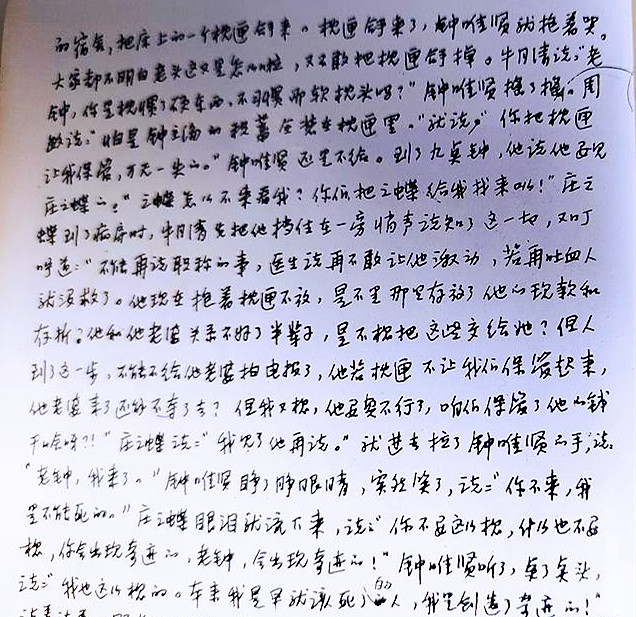 的宿舍，把床上的一个枕匣舒来。枕匣舒来了，钟唯贤就抱着哭。
大家却不明白老头这又是怎么啦，又不敢把枕匣舒掉。牛月清说："老
钟，你是枕惯了硬东西，不习惯那软枕头吗？"钟唯贤摇了摇。周
敏说："怕是钟主编的积蓄全装在枕匣里。"就说："你把枕匣
让我保管，万无一失的。"钟唯贤还是不给。到了九点钟，他说他要见
庄之蝶的："之蝶怎么不来看我？你们把之蝶给我找来呀！"庄之
蝶到了病房时，牛月清先把他挡住在一旁悄声说知了这一切，又叮
咛道："不能再说职称的事，医生说再不敢让他激动，若再吐血人
就没救了。他现在抱着枕匣不放，是不是那里存放了他的现款和
存折？他和他老婆关系不好了半辈子，是不想把这些交给她？但人
到了这一步，不能不给他老婆拍电报了，他若枕匣不让我们保管起来，
他老婆来了还能不夺了去？但我又想，他要真不行了，咱们保管了他的钱
干啥呀？！"庄之蝶说："我见了他再说。"就进去拉了钟唯贤的手，说：
"老钟，我来了。"钟唯贤睁了睁眼睛，突然笑了，说："你不来，我
是不能死的。"庄之蝶眼泪就流下来，说："你不要这么想，什么也不要
想，你会出现奇迹的，老钟，会出现奇迹的！"钟唯贤听了，点了点头，
说："我也这么想的。本来我是早就该死了的人，我是创造了奇迹的！"